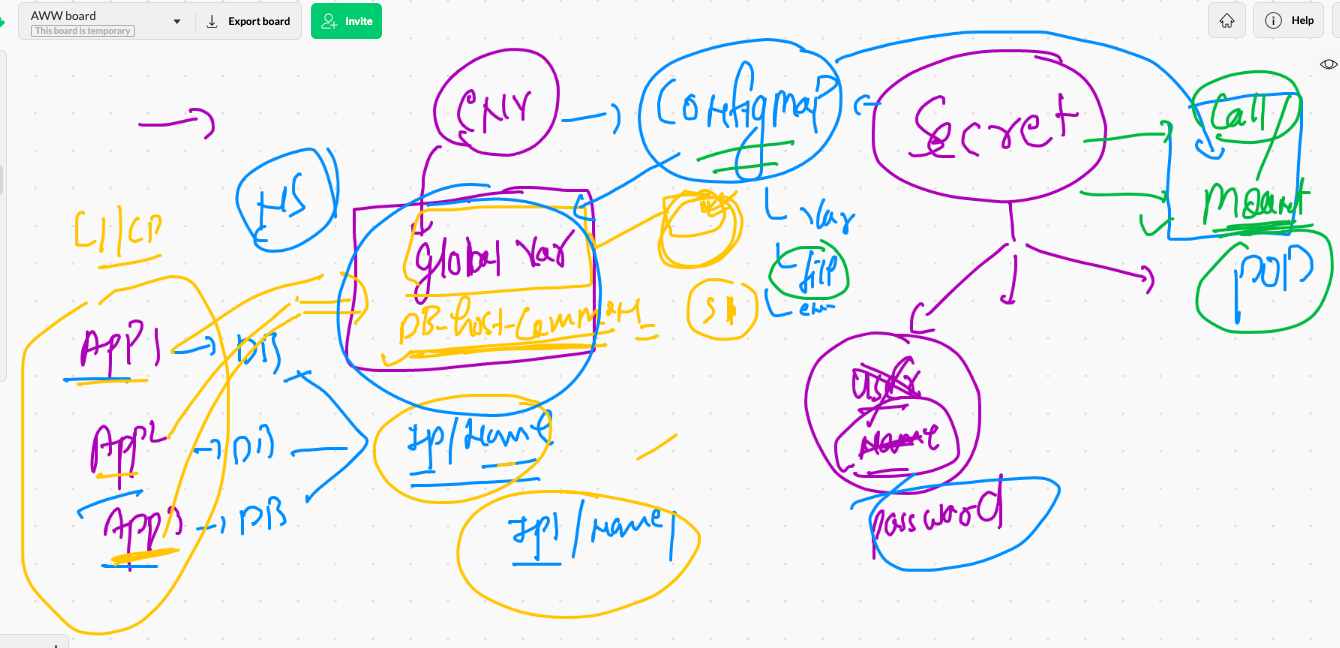 AWW board
This board is temporary
Export board
Invite
Help
ENV
ConfigMap
Secret
Call
Mount
POD
NS
CI/CD
Global Var
DB-host-Common
Var
file
env
App1 → DB
App2 → DB
App3 → DB
IP/Name
IP1/Name1
User
Name
Password